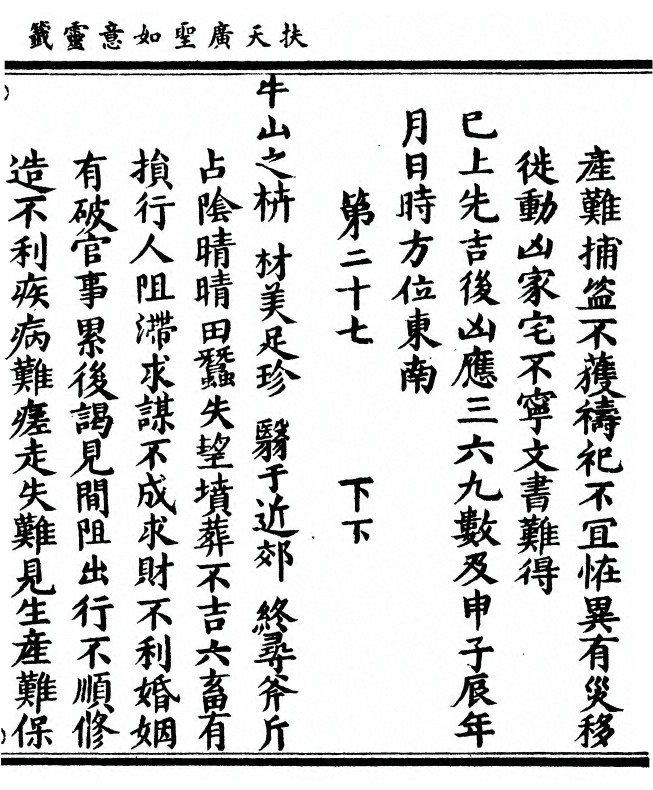 扶天廣聖如意靈籤
產難捕盜不獲禱祀不宜恠異有災移
徙動凶家宅不寧文書難得
已上先吉後凶應三六九數及申子辰年
月日時方位東南
第二十七 下下
牛山之枿 材美足珍 翳于近郊 終尋斧斤
占陰晴晴田蠶失望墳葬不吉六畜有
損行人阻滯求謀不成求財不利婚姻
有破官事累後謁見間阻出行不順修
造不利疾病難瘥走失難見生產難保